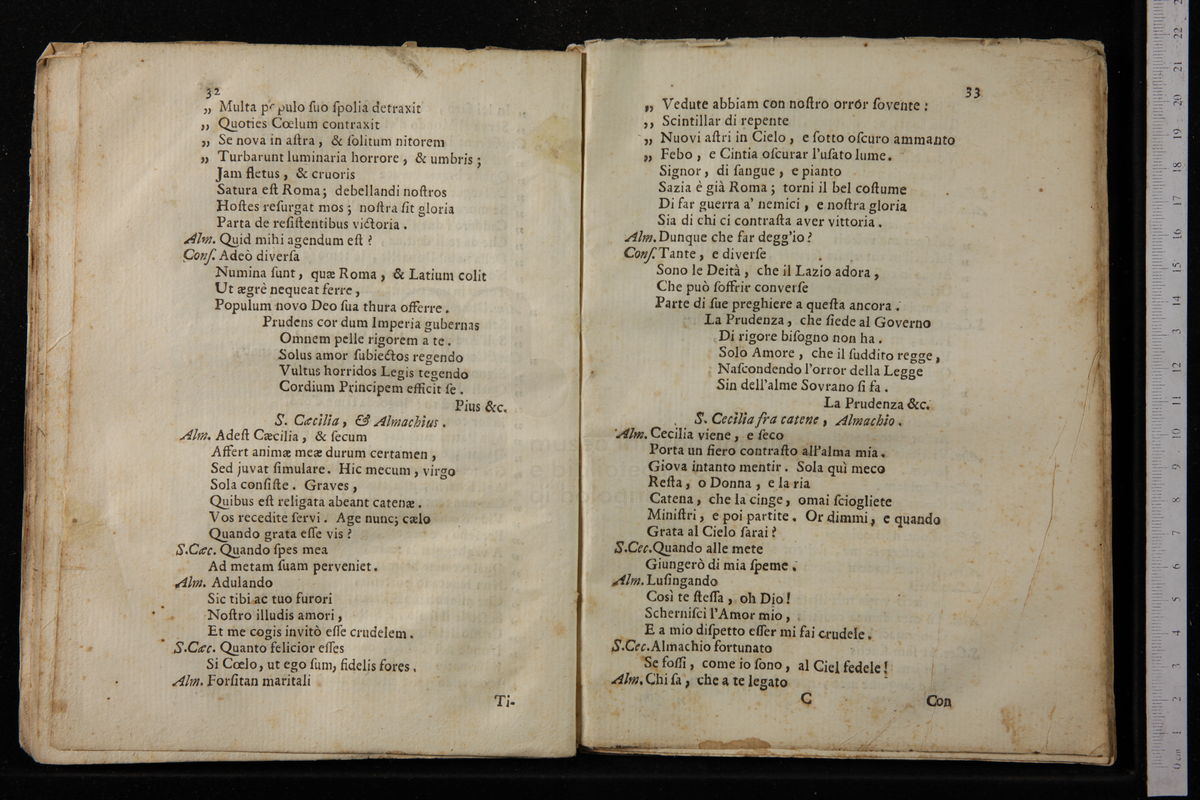 32
„ Multa populo ſuo ſpolia detraxit
„ Quoties Cœlum contraxit
„ Se nova in aſtra, & ſolitum nitorem
„ Turbarunt luminaria horrore, & umbris;
Jam fletus, & cruoris
Satura eſt Roma; debellandi noſtros
Hoſtes reſurgat mos; noſtra ſit gloria
Parta de reſiſtentibus victoria.
Alm. Quid mihi agendum eſt?
Conſ. Adeò diverſa
Numina ſunt, quæ Roma, & Latium colit
Ut ægrè nequeat ferre,
Populum novo Deo ſua thura offerre.
Prudens cor dum Imperia gubernas
Omnem pelle rigorem a te.
Solus amor ſubiectos regendo
Vultus horridos Legis tegendo
Cordium Principem efficit ſe.
Pius &c.
S. Cæcilia, & Almachius.
Alm. Adeſt Cæcilia, & ſecum
Affert animæ meæ durum certamen,
Sed juvat ſimulare. Hic mecum, virgo
Sola conſiſte. Graves,
Quibus eſt religata abeant catenæ.
Vos recedite ſervi. Age nunc; cælo
Quando grata eſſe vis?
S.Cæc. Quando ſpes mea
Ad metam ſuam perveniet.
Alm. Adulando
Sic tibi ac tuo furori
Noſtro illudis amori,
Et me cogis invitò eſſe crudelem.
S.Cæc. Quanto felicior eſſes
Si Cœlo, ut ego ſum, fidelis fores.
Alm. Forſitan maritali
Ti-
33
„ Vedute abbiam con noſtro orrór ſovente:
„ Scintillar di repente
„ Nuovi aſtri in Cielo, e ſotto oſcuro ammanto
„ Febo, e Cintia oſcurar l'uſato lume.
Signor, di ſangue, e pianto
Sazia è già Roma; torni il bel coſtume
Di far guerra a' nemici, e noſtra gloria
Sia di chi ci contraſta aver vittoria.
Alm. Dunque che far degg'io?
Conſ. Tante, e diverſe
Sono le Deità, che il Lazio adora,
Che può ſoffrir converſe
Parte di ſue preghiere a queſta ancora.
La Prudenza, che ſiede al Governo
Di rigore biſogno non ha.
Solo Amore, che il ſuddito regge,
Naſcondendo l'orror della Legge
Sin dell'alme Sovrano ſi fa.
La Prudenza &c.
S. Cecilia fra catene, Almachio.
Alm. Cecilia viene, e ſeco
Porta un fiero contraſto all'alma mia.
Giova intanto mentir. Sola quì meco
Reſta, o Donna, e la ria
Catena, che la cinge, omai ſciogliete
Miniſtri, e poi partite. Or dimmi, e quando
Grata al Cielo ſarai?
S.Cec. Quando alle mete
Giungerò di mia ſpeme.
Alm. Luſingando
Così te ſteſſa, oh Dio!
Scherniſci l'Amor mio,
E a mio diſpetto eſſer mi fai crudele.
S.Cec. Almachio fortunato
Se foſſi, come io ſono, al Ciel fedele!
Alm. Chi ſa, che a te legato
C
Con